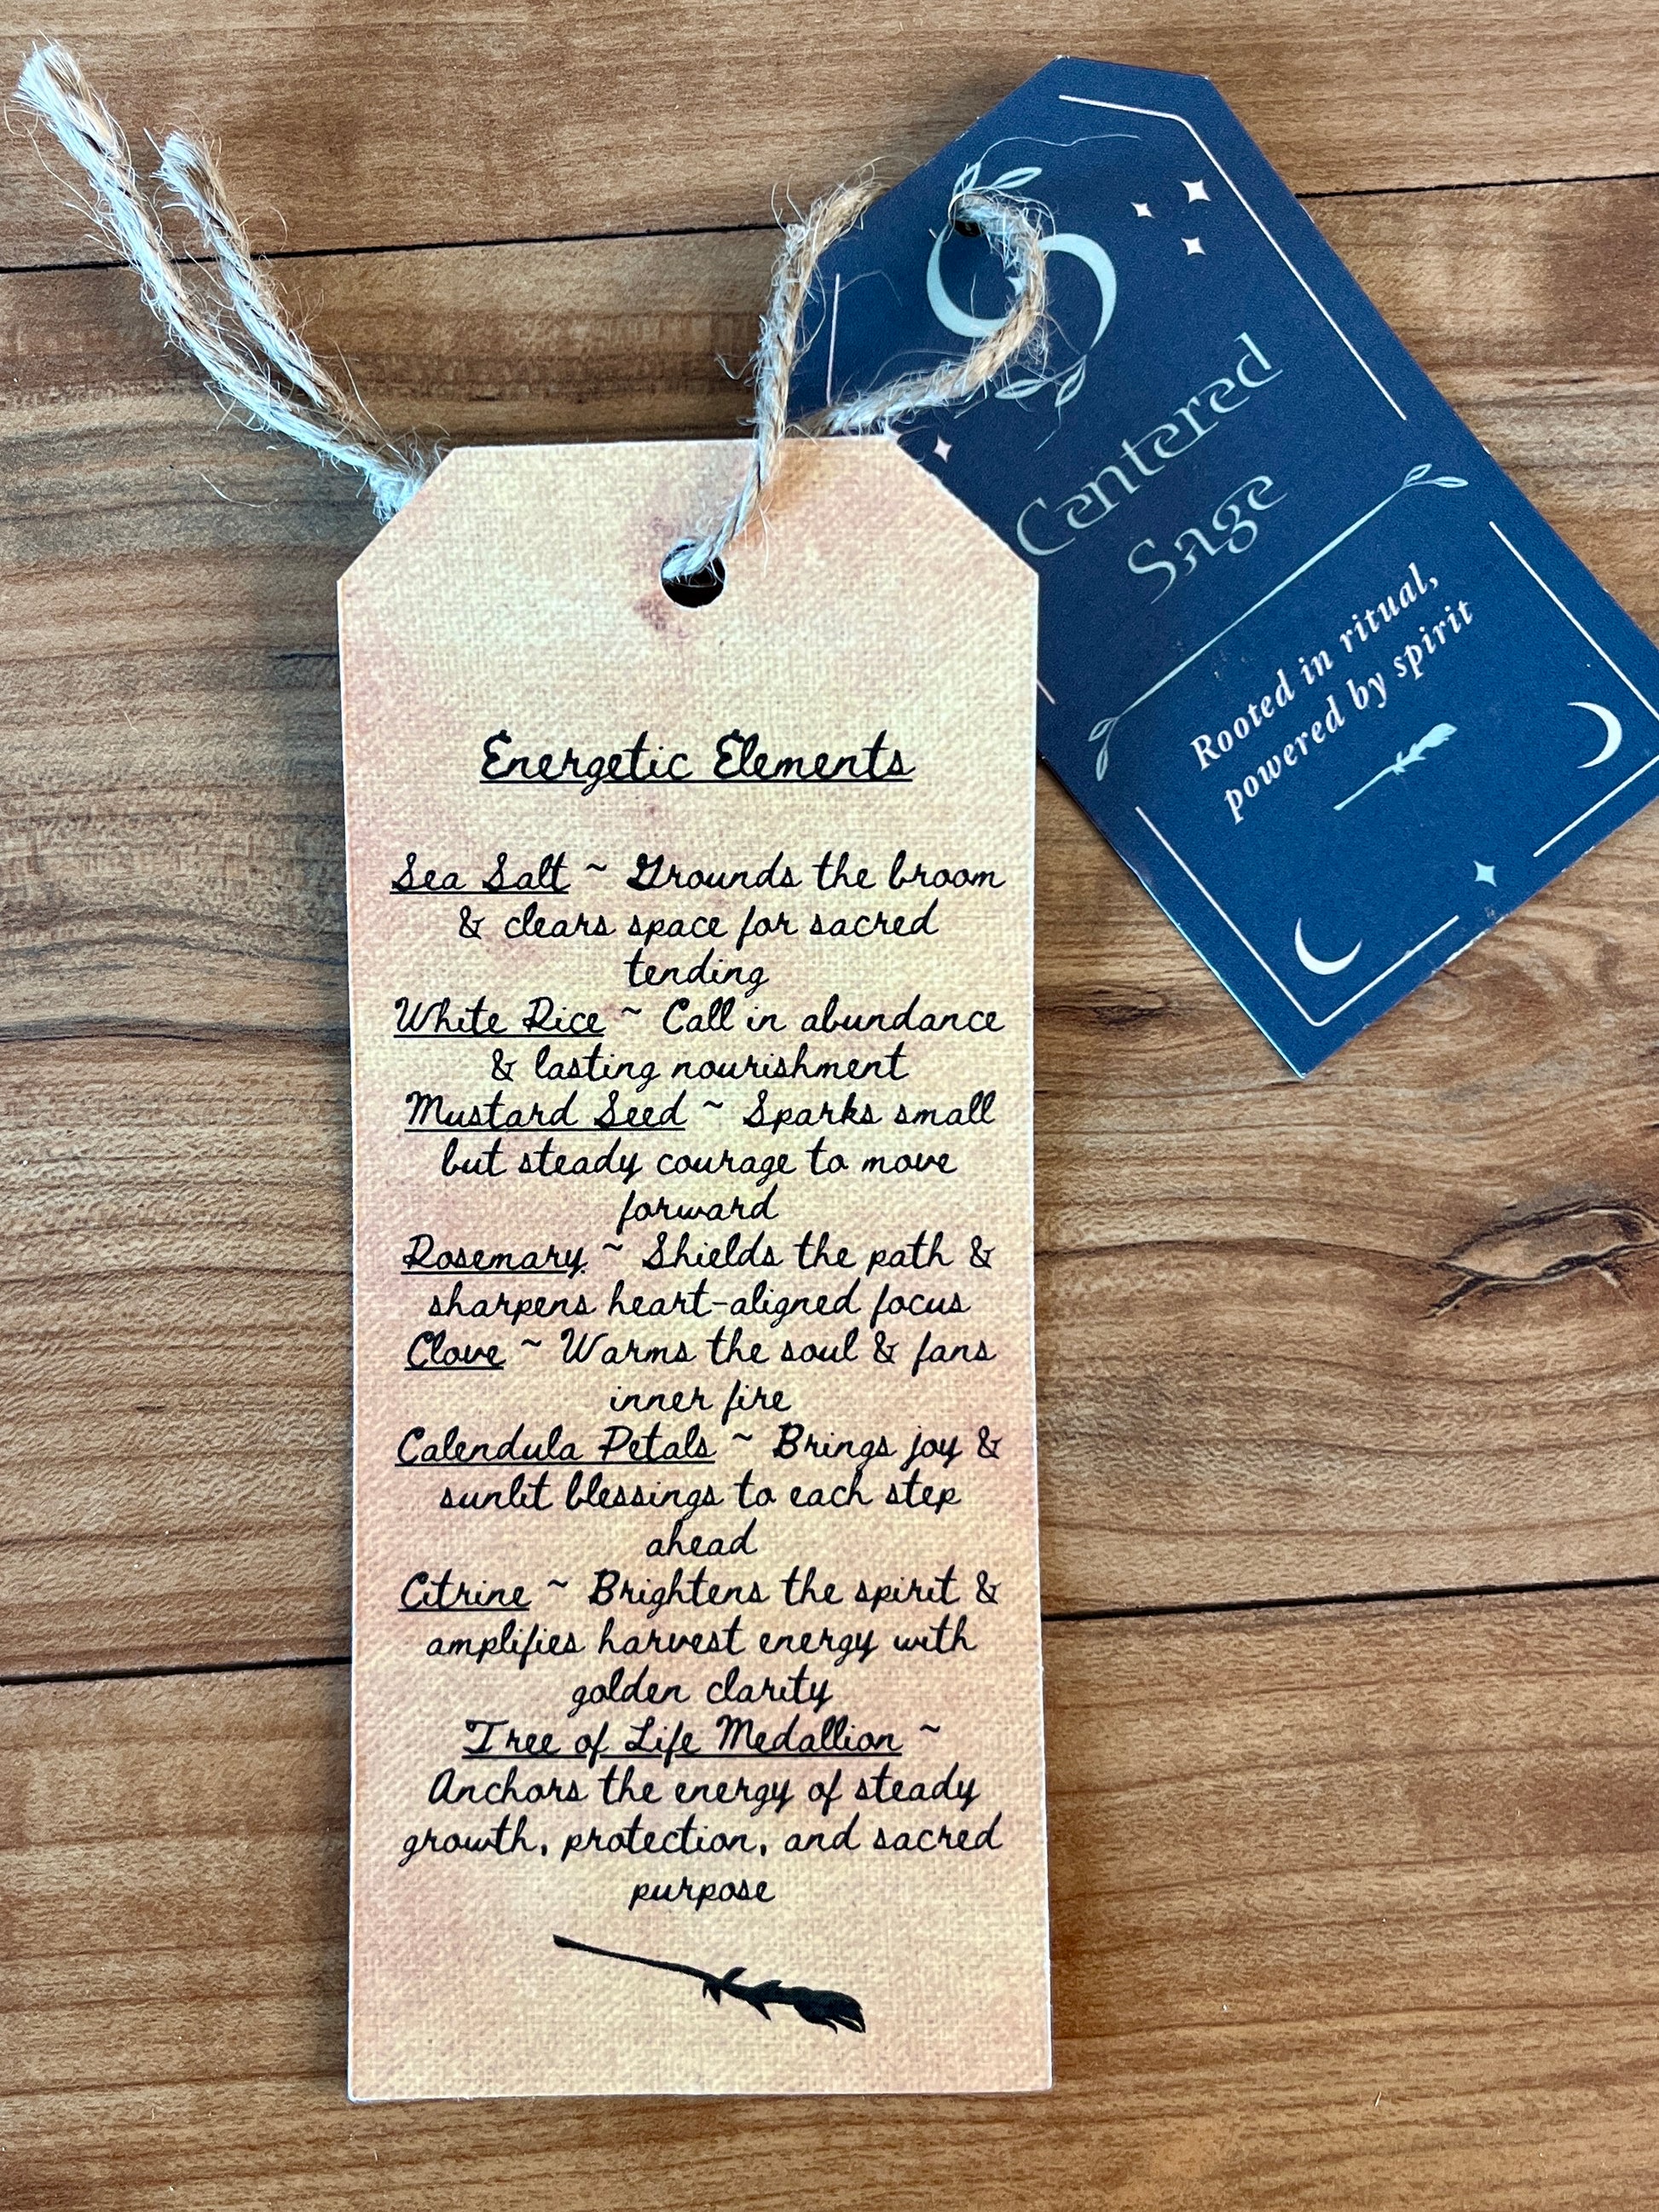 Centered
Sage
Rooted in ritual,
powered by spirit
Energetic Elements
Sea Salt ~ Grounds the broom
& clears space for sacred
tending
White Rice ~ Call in abundance
& lasting nourishment
Mustard Seed ~ Sparks small
but steady courage to move
forward
Rosemary ~ Shields the path &
sharpens heart-aligned focus
Clove ~ Warms the soul & fans
inner fire
Calendula Petals ~ Brings joy &
sunlit blessings to each step
ahead
Citrine ~ Brightens the spirit &
amplifies harvest energy with
golden clarity
Tree of Life Medallion ~
Anchors the energy of steady
growth, protection, and sacred
purpose